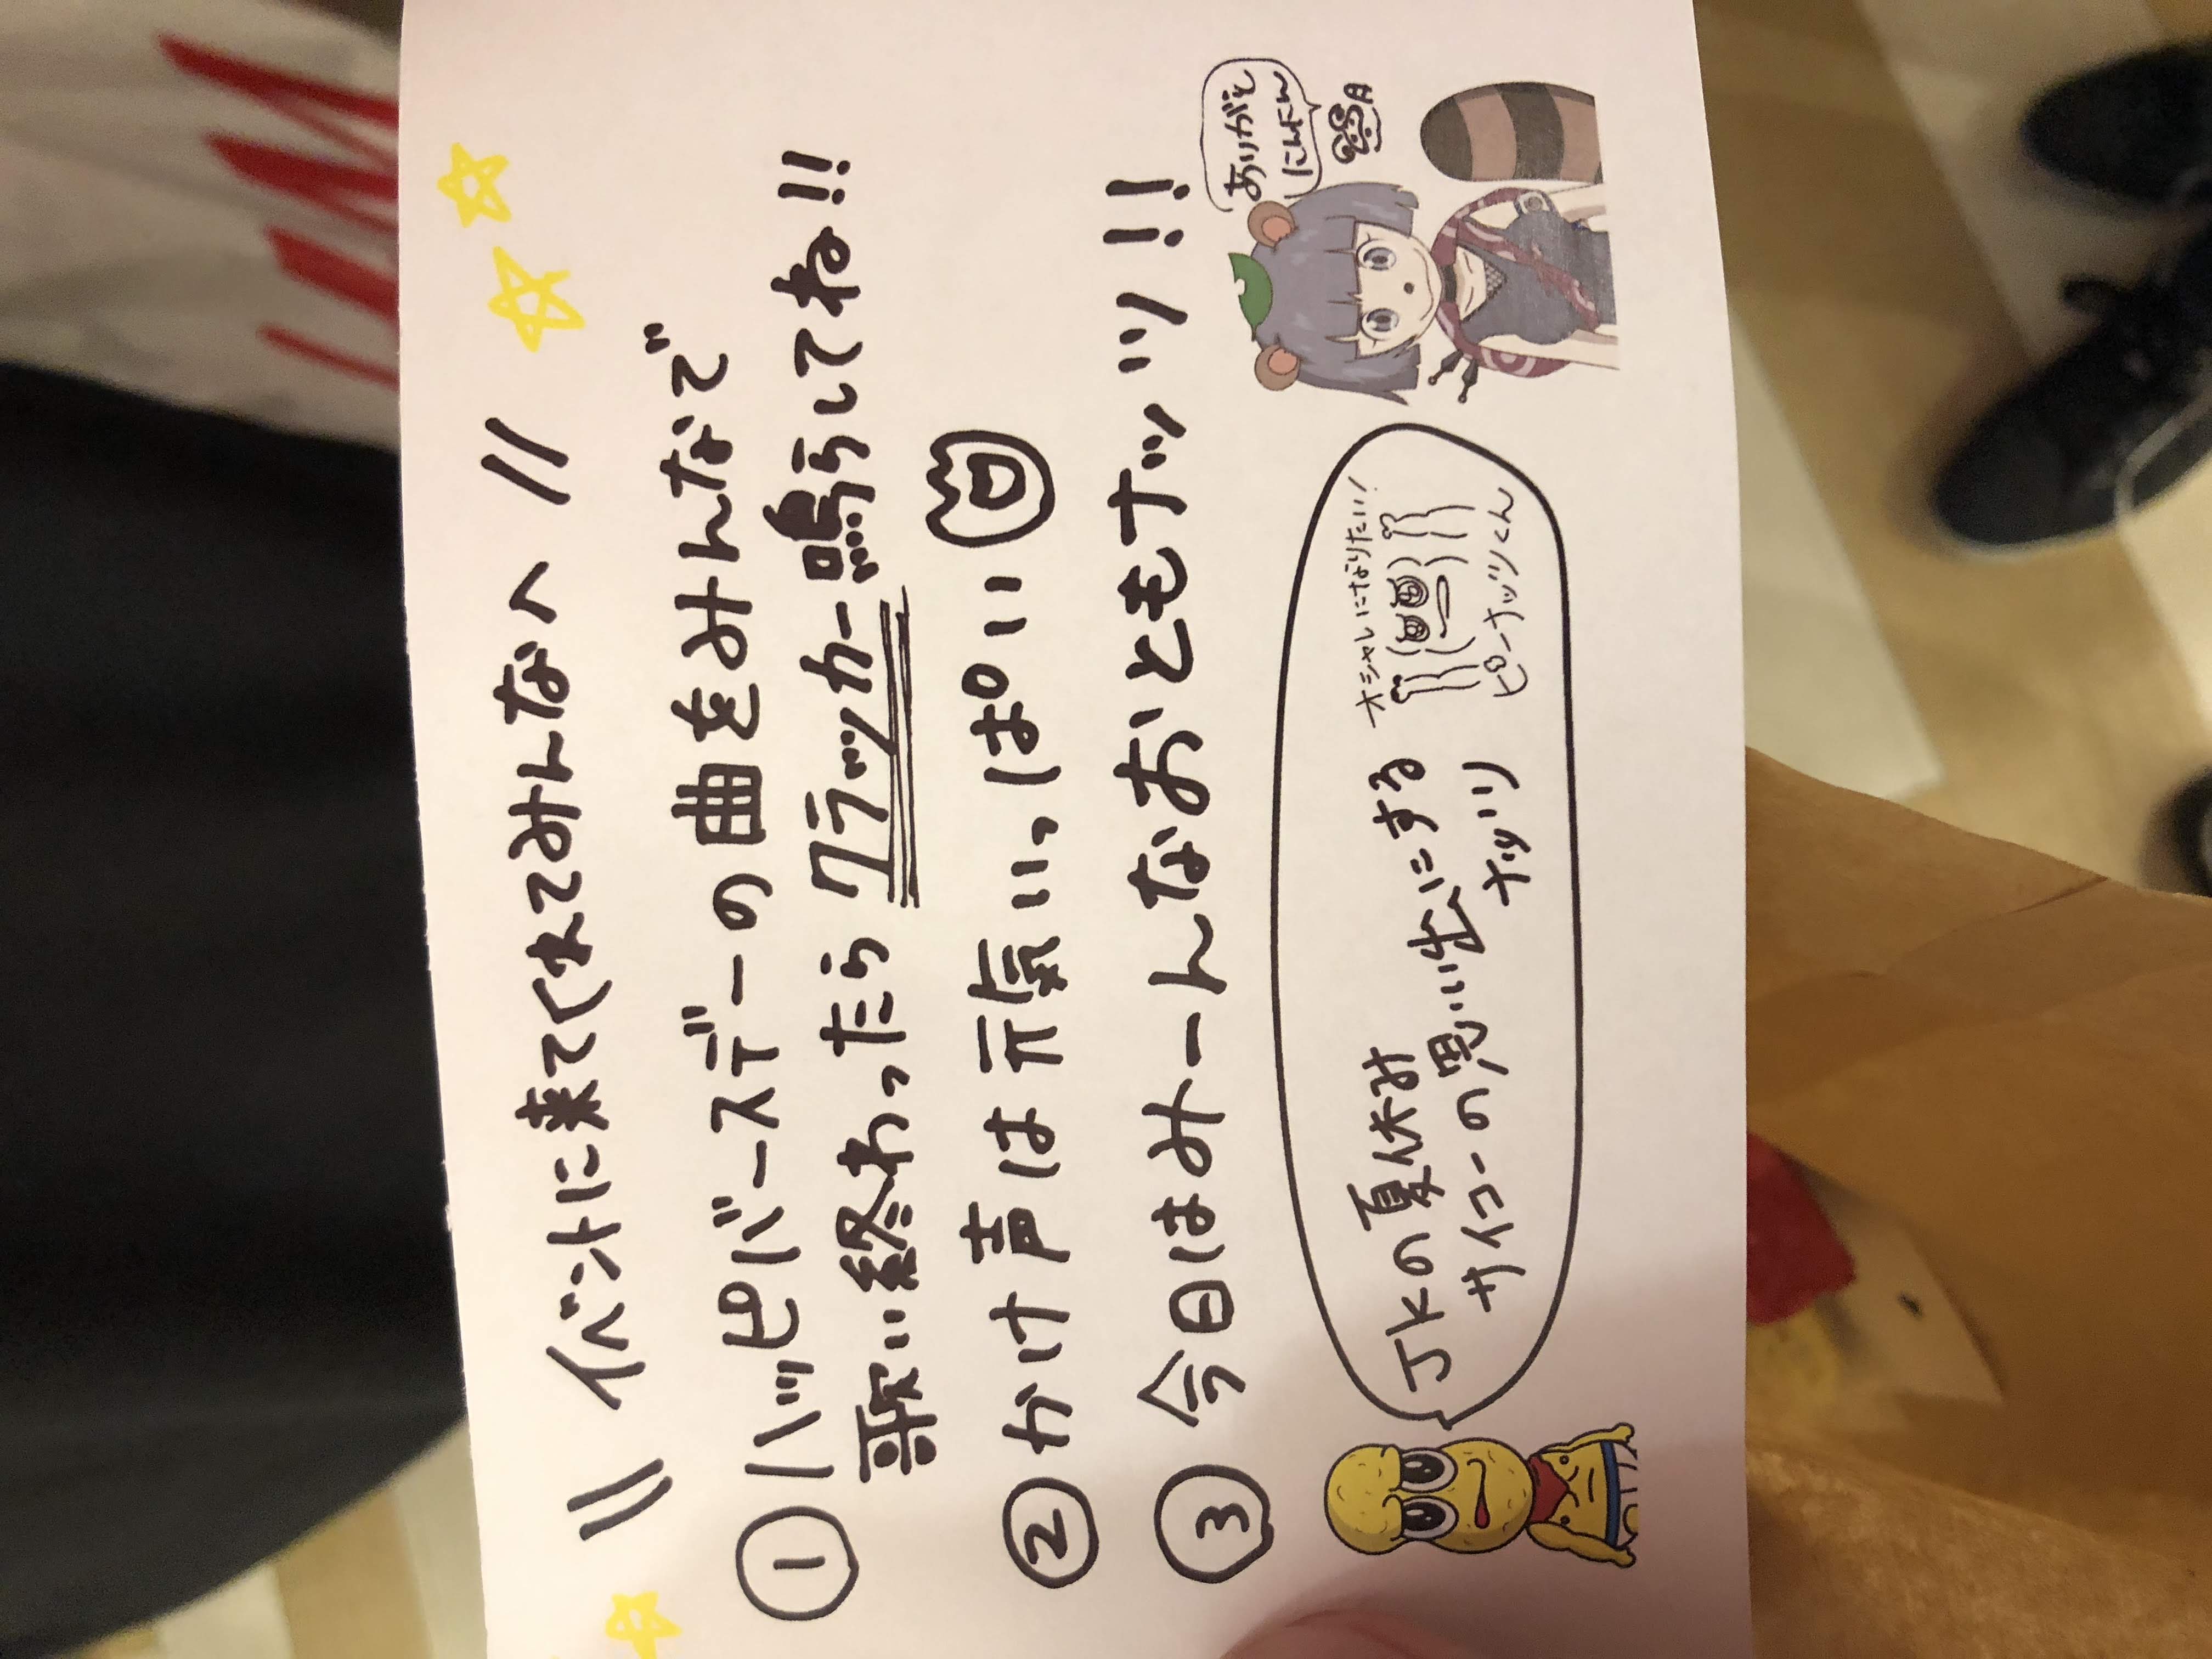 \\ イベントに来てくれてみんなへ //
① ハッピバースデーの曲をみんなで
歌い終わったら クラッカー鳴らしてね!!
② かけ声は元気いっぱい
③ 今日はみーんなおともナッツ!!
JKの夏休み
サイコーの思い出にする
ナッツ
オシャレになりたい!
ピーナッツくん
ありがとう
にんにん